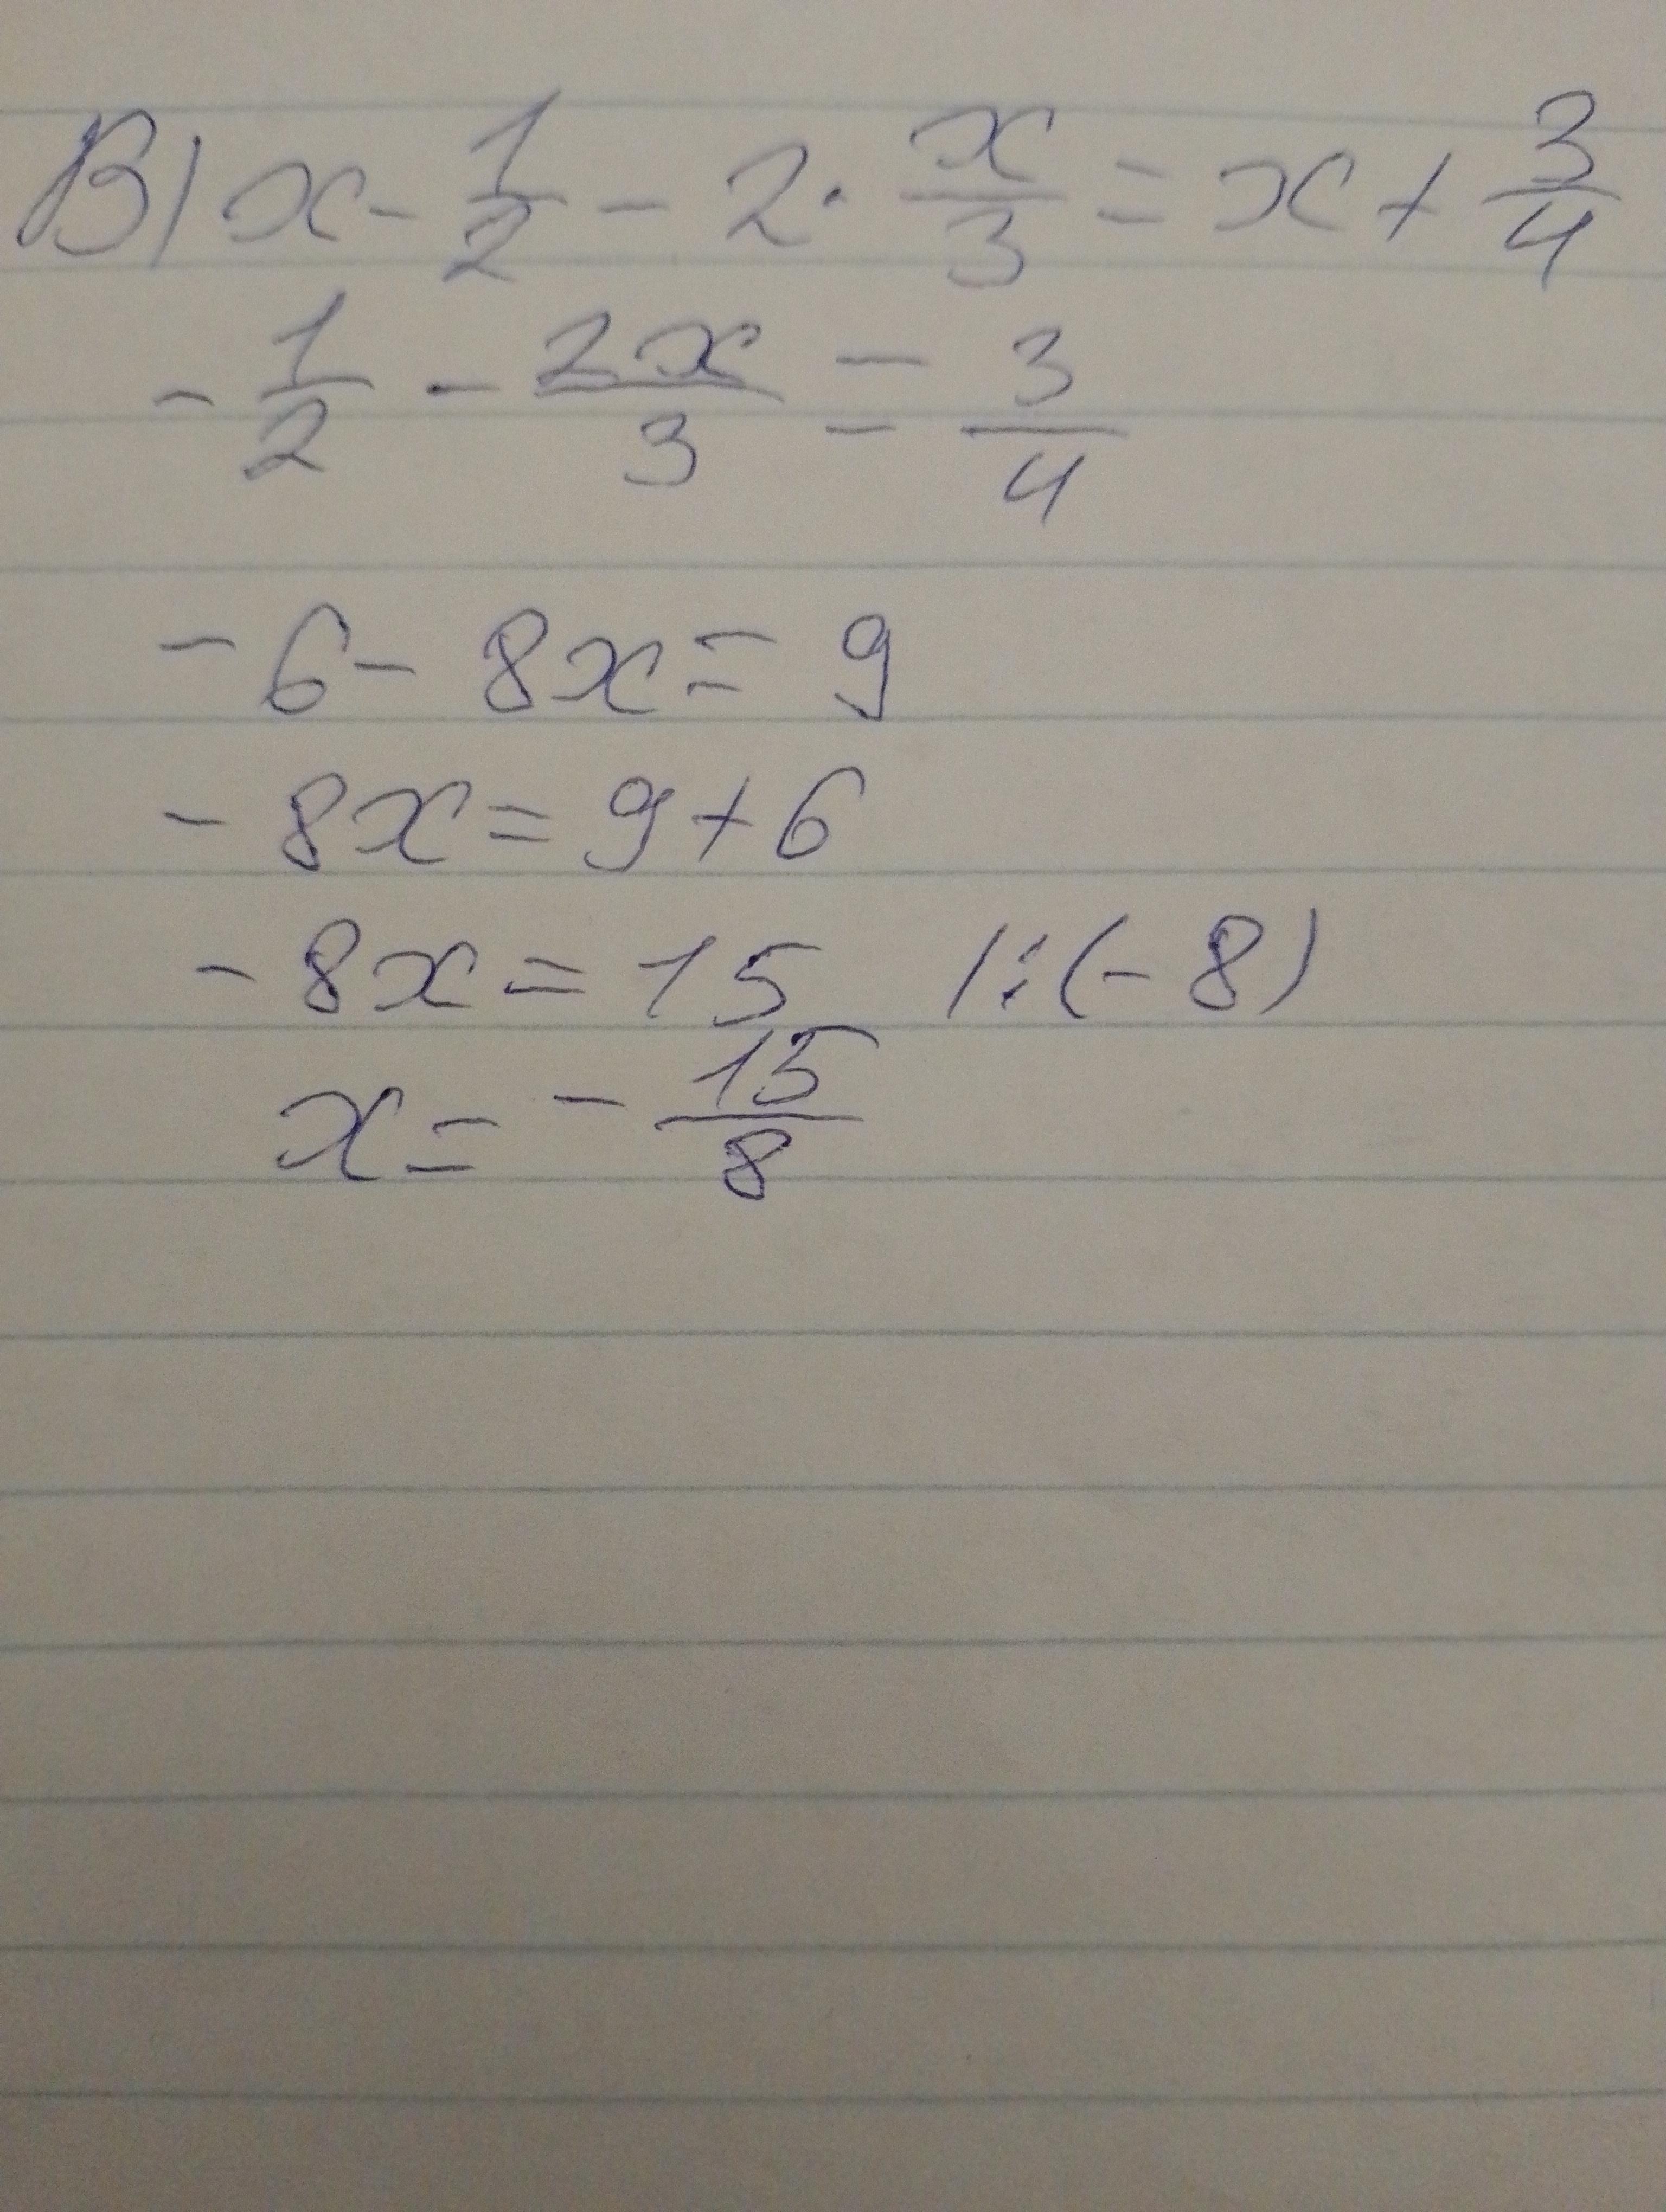 B) x - 1/2 - 2 · x/3 = x + 3/4
- 1/2 - 2x/3 = 3/4
- 6 - 8x = 9
- 8x = 9 + 6
- 8x = 15 /:(- 8)
x = - 15/8